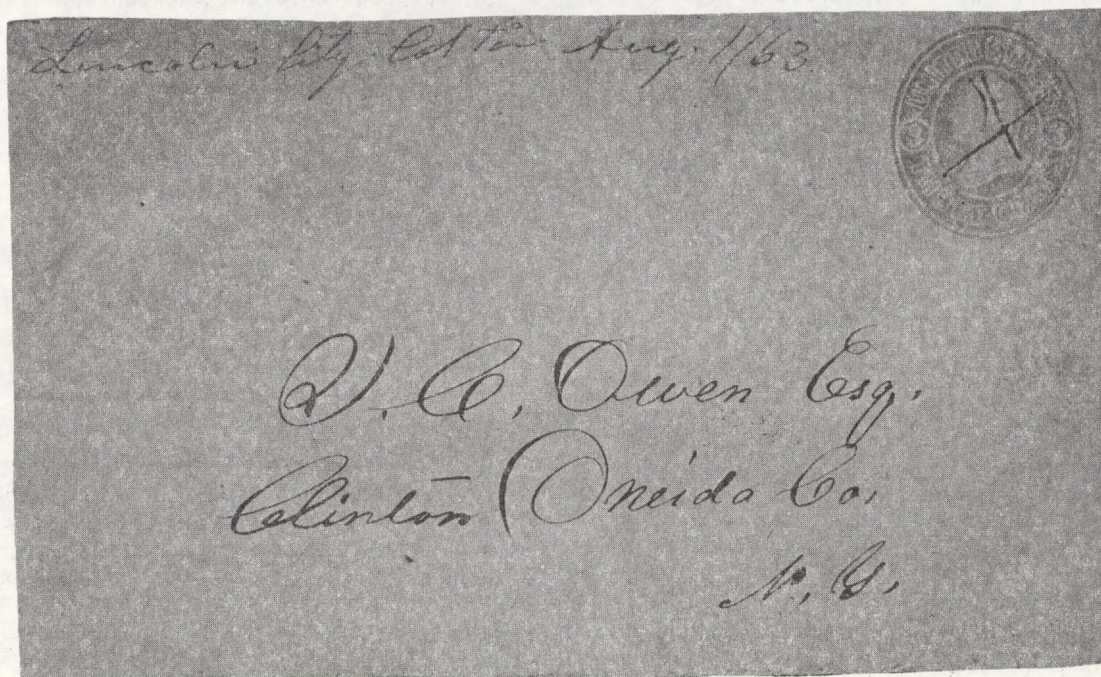 Lincoln City Col Ter Aug. 1/63
D. C. Owen Esq.
Clinton Oneida Co.
N. Y.